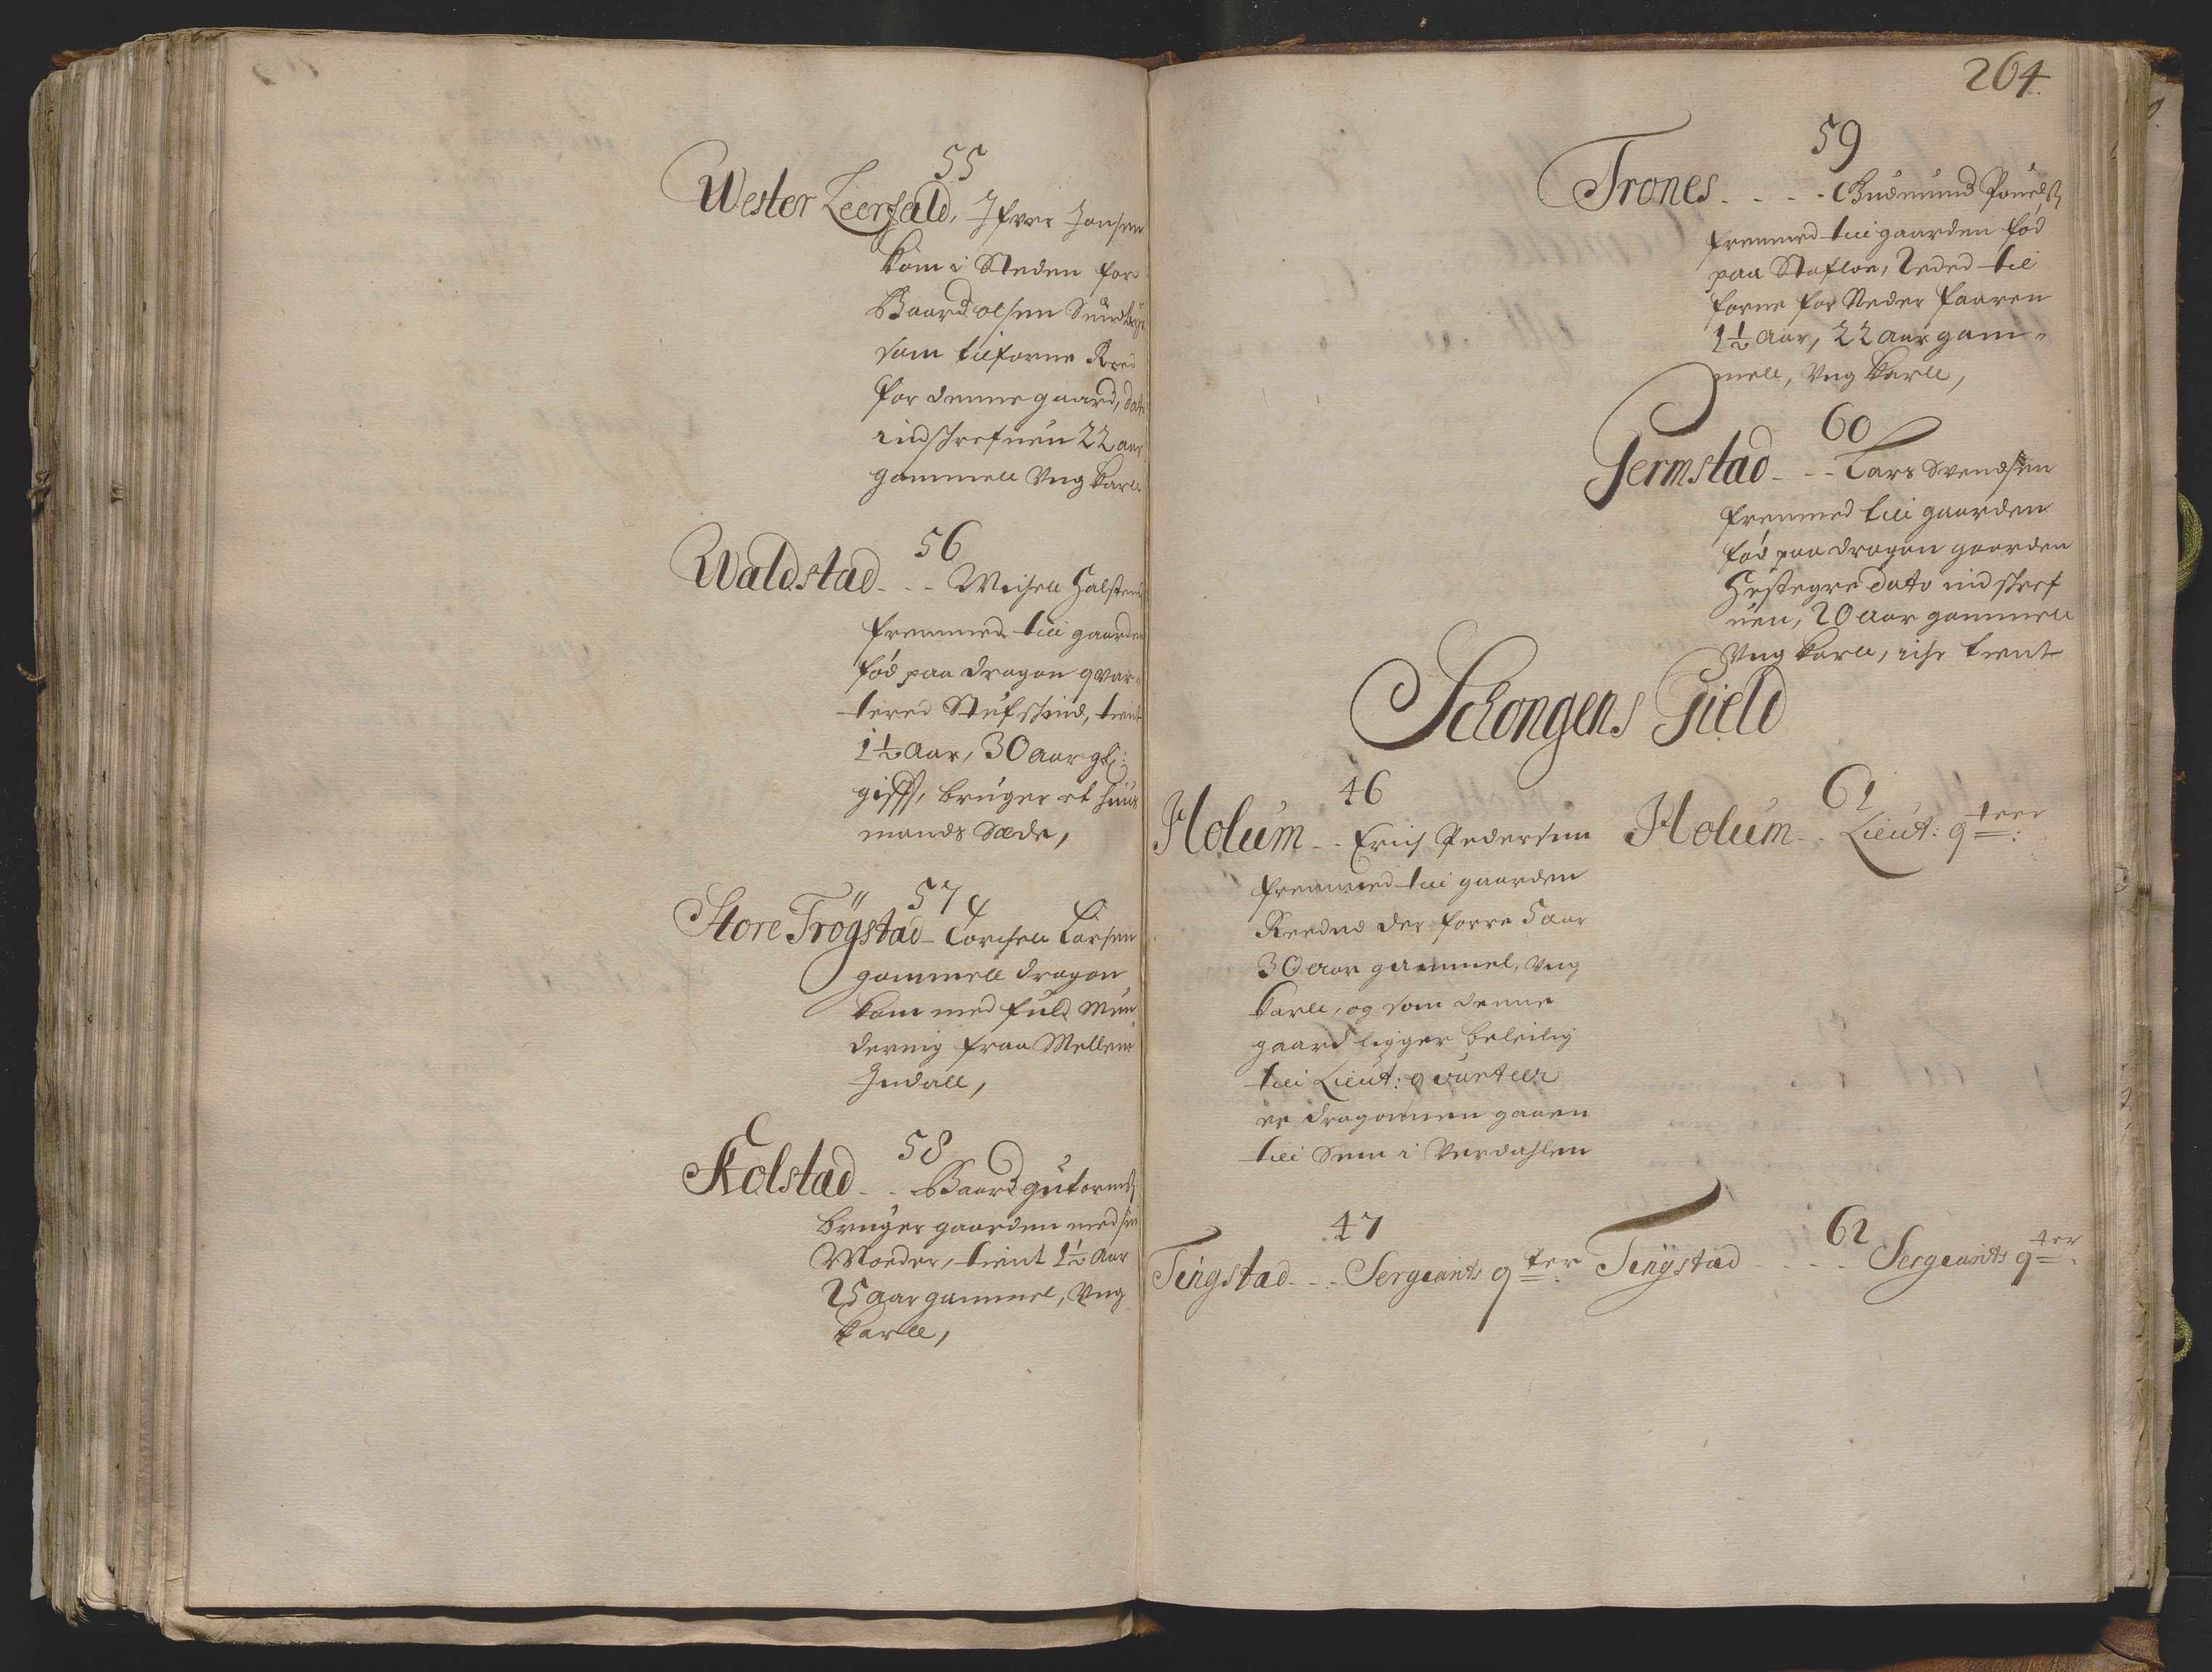 55
Wester Leerfald, Ifver Jonsen
kom i Steden for
Baard olsen
som tilforne Red
for denne gaard, dato
indschrefuen 22 aar
gammell Vng karll
56
Waldstad - - - Michell Halsten
fremmed till gaarden
fød paa dragon qvar-
tered Stufschind, tient
1½ Aar, 30 aar gl:
gifft, bruger et huus
mands Sæde,
57
Store Trögstad - Torchell Larsen
gammell dragon
kom med fuld Mun
dering fraa Mellem
Indall,
58
Kolstad - - Baard gutormß
bruger gaarden med sin
Moeder, tient 1½ Aar
25 aar gammel, Vng
karll,
264.
59
Trones - - - - Gudmund Pouelß
fremmed till gaarden fød
paa Stafloe, Reded til
forne for Neder faaren
1½ Aar, 22 aar gam-
mell, Vng karll,
60
Germstad - - - Lars Svendsen
fremmed till gaarden
fød paa dragon gaarden
Hestegre dato indschref
uen, 20 aar gammell
Vng karll, iche tient
Schongens Gield
46
Holum - - Erich Pedersen
fremmed till gaarden
Reedid der forre 5 aar
30 aar gammel, Vng
karll, og som denne
gaard ligger beleilig
till Lieut: qvarteer
er dragonnen gaaen
till Sem i Verdahlen
61
Holum - - Lieut: qteer:
47
Tingstad - - - Sergeants qter:
62
Tingstad - - - - Sergeants qter: